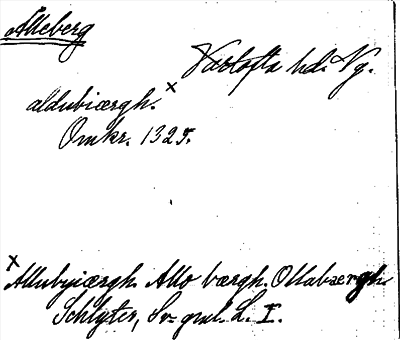 Ålleberg
Vartofta hd. Vg.
aldubiærgh. x
Omkr. 1325.
x Allubyiærgh. Allo bærgh. Ollabærgh.
Schlyter, Sv. gml. L. I.